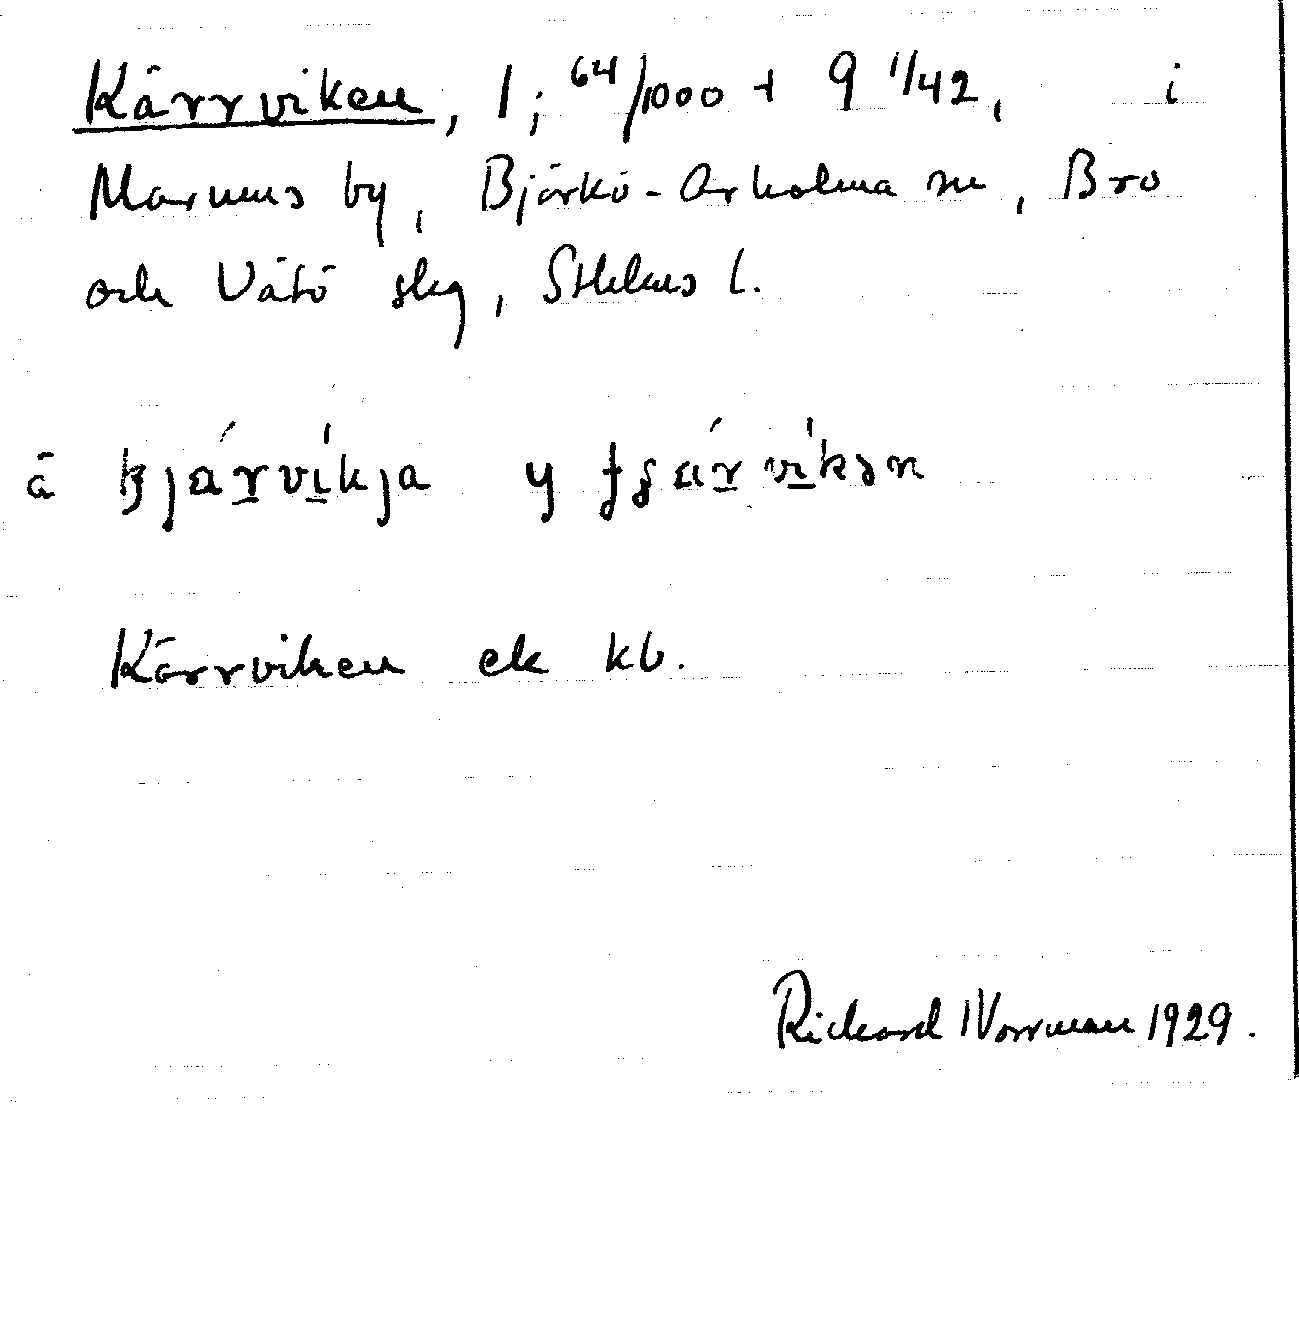 Kärrviken, 1; 64/1000 + 9 1/42, i
Marums by, Björkö-Arholma sn, Bro
och Vätö skg, Sthlms l.
Kärrviken ek kb.
Rickard Norrman 1929.